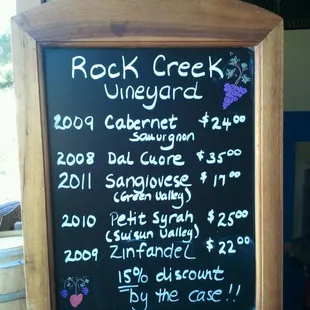 Rock Creek
Vineyard
2009 Cabernet $24.00
Sauvrgnon
2008 Dal Cuore $35.00
2011 Sangiovese $17.00
(Green Valley)
2010 Petit Syrah $25.00
(Suisun Valley)
2009 Zinfandel $22.00
15% discount
by the case!!